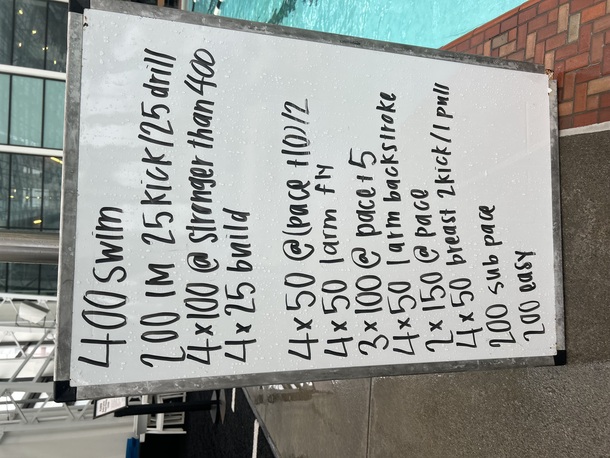 400 swim
200 IM 25 kick/25 drill
4x100 @ stronger than 400
4x25 build
4x50 @ (pace +10)/2
4x50 1arm fly
3x100 @ pace+5
4x50 1arm backstroke
2x150 @ pace
4x50 breast 2kick/1pull
200 sub pace
200 easy